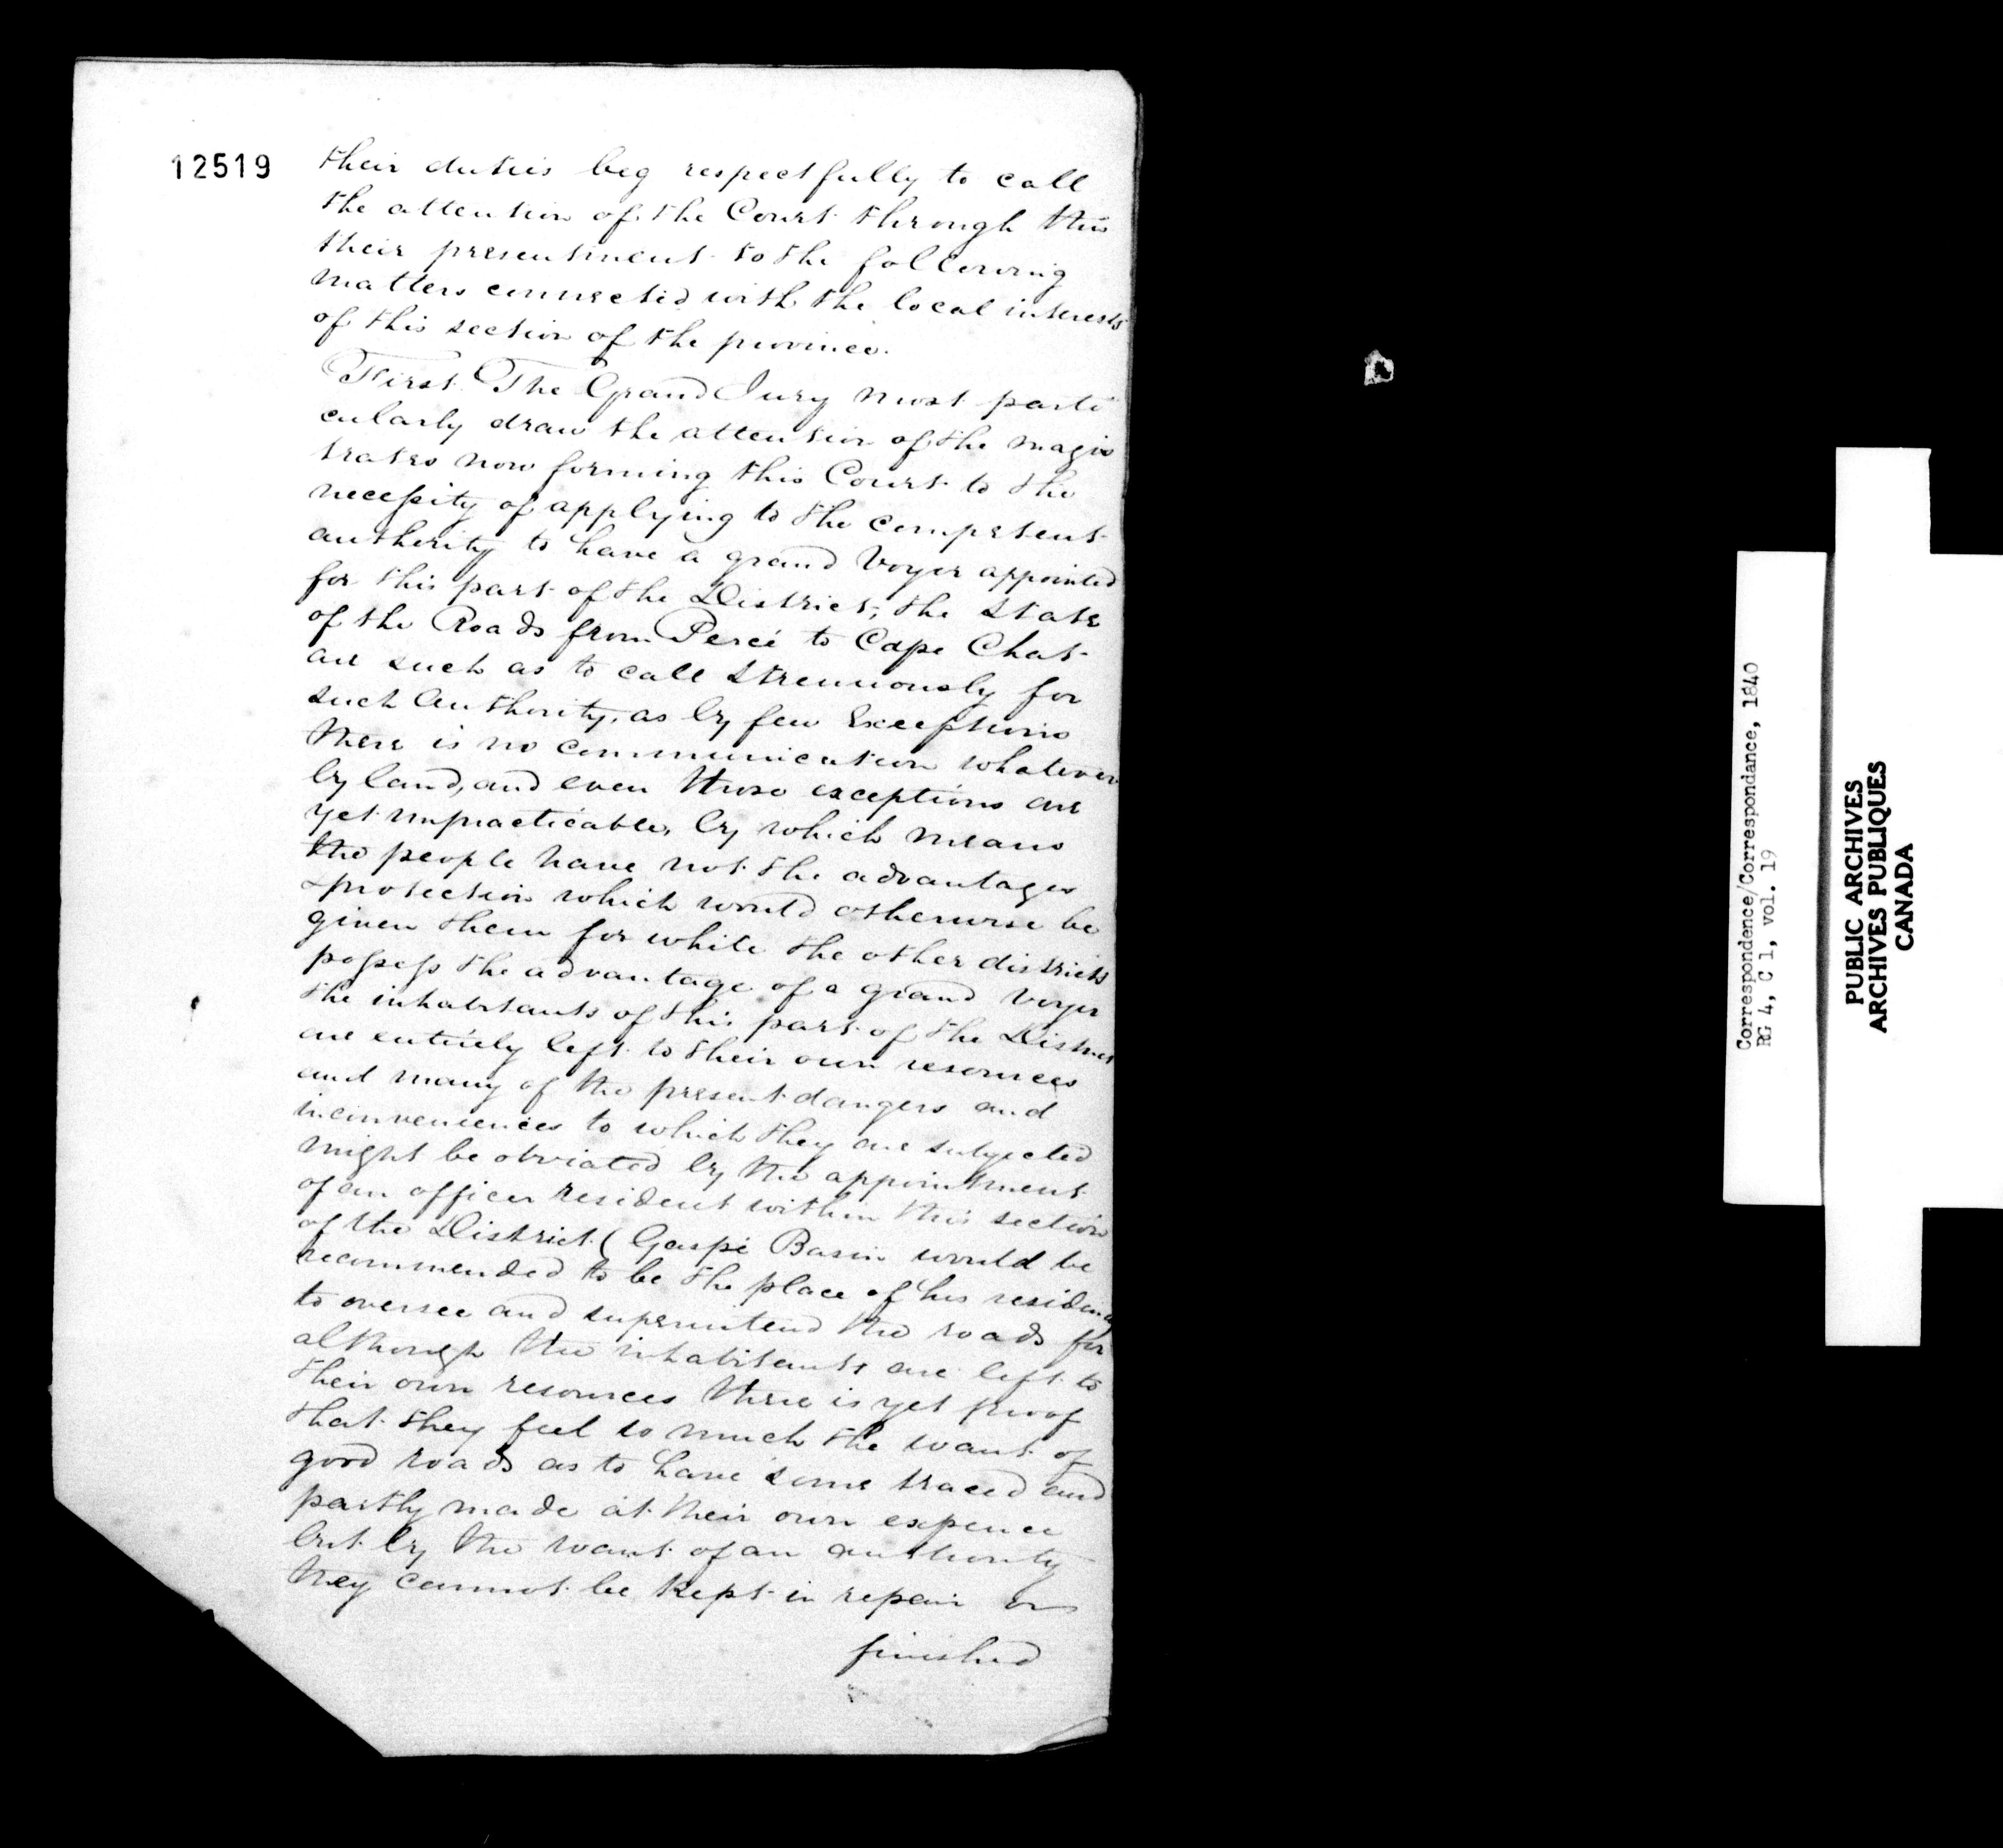 12519
their duties beg respectfully to call
the attention of the Court through this
their presentment to the following
matters connected with the local interests
of this section of the province.
First. The Grand Jury most parti
cularly draw the attention of the magis
trates now forming this Court to the
necessity of applying to the competent
authority to have a grand Voyer appointed
for this part of the District, the State
of the Roads from Percé to Cape Chat
are such as to call strenuously for
such Authority, as by few Exceptions
there is no communication whatever
by land, and even those exceptions are
yet impracticable, by which means
the people have not the advantages
& protection which would otherwise be
given them for while the other districts
possess the advantage of a grand Voyer
the inhabitants of this part of the District
are entirely left to their own resources
and many of the present dangers and
inconveniences to which they are subjected
might be obviated by the appointment
of an officer resident within this section
of the District (Gaspé Basin would be
recommended to be the place of his residence
to oversee and superintend the roads for
although the inhabitants are left to
their own resources there is yet proof
that they feel so much the want of
good roads as to have some traced and
partly made at their own expence
but by the want of an authority
they cannot be kept in repair or
finished
Correspondence/Correspondance, 1840
RG 4, C 1, vol. 19
PUBLIC ARCHIVES
ARCHIVES PUBLIQUES
CANADA